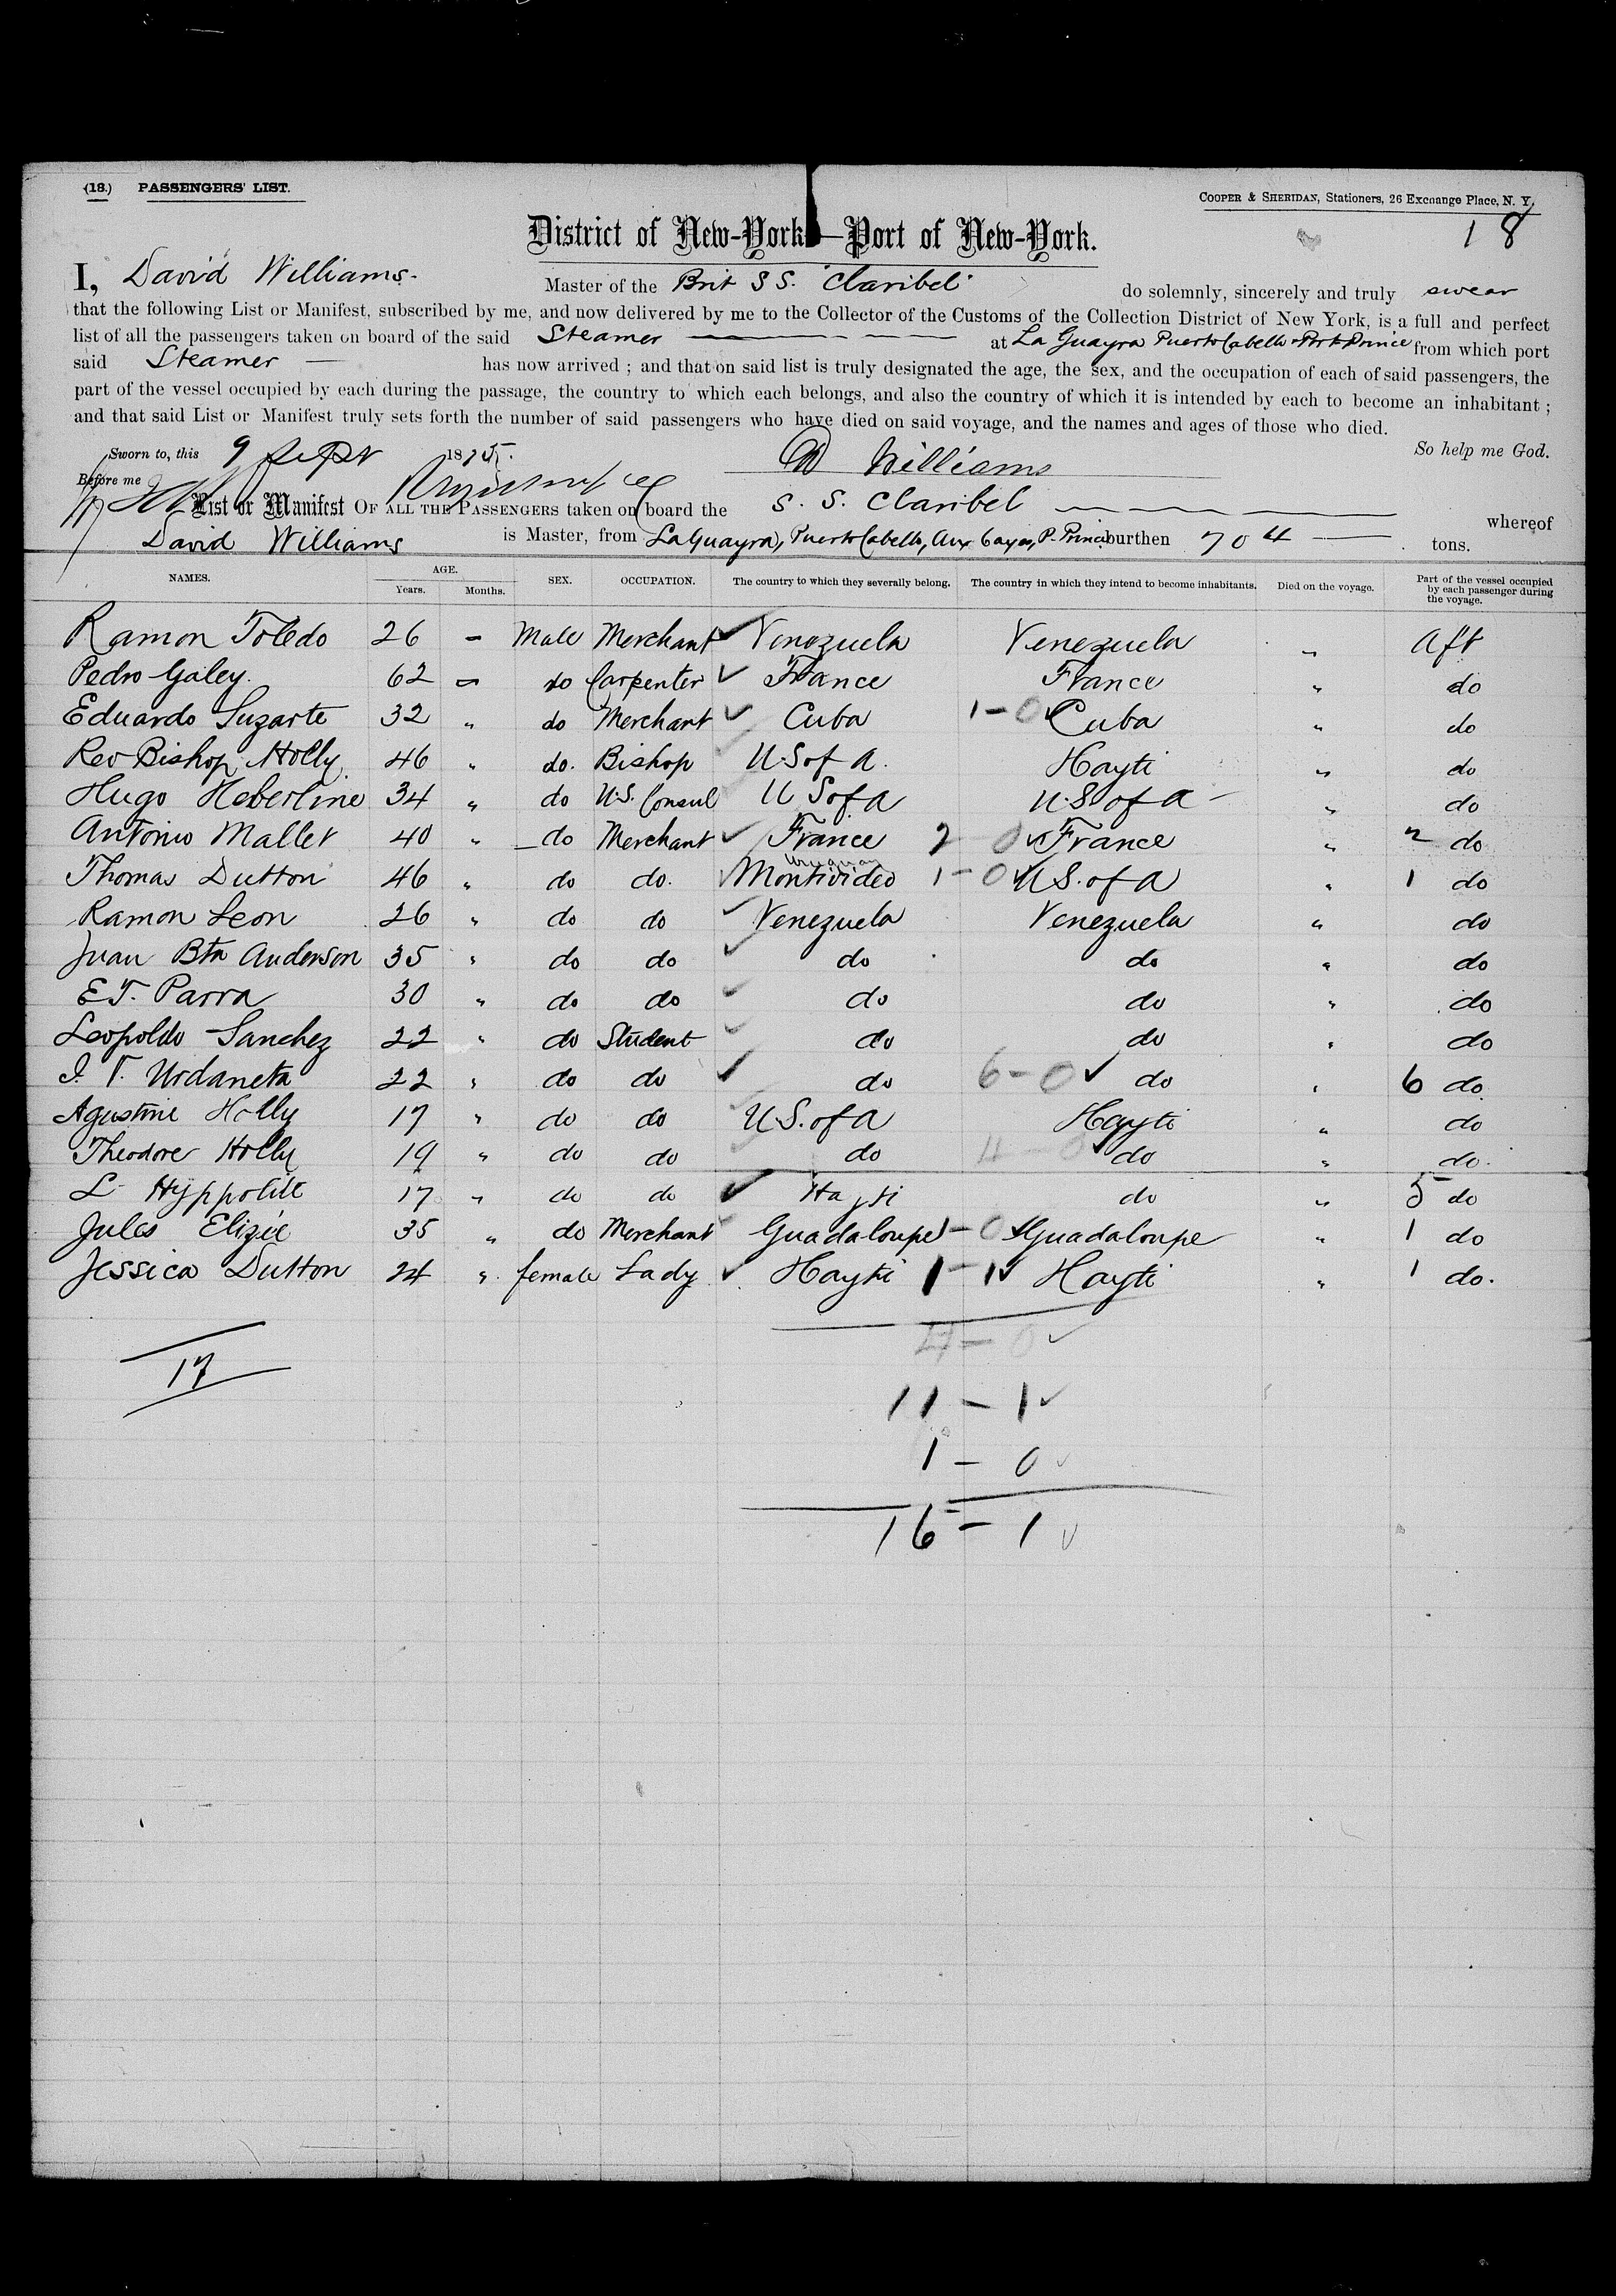 (18.) PASSENGERS' LIST.
COOPER & SHERIDAN, Stationers, 26 Exchange Place, N. Y.
18
District of New-York—Port of New-York.
I, David Williams. Master of the Brit S S. "Claribel" do solemnly, sincerely and truly swear
that the following List or Manifest, subscribed by me, and now delivered by me to the Collector of the Customs of the Collection District of New York, is a full and perfect
list of all the passengers taken on board of the said Steamer at La Guayra Puerto Cabello & Port Prince from which port
said Steamer — has now arrived ; and that on said list is truly designated the age, the sex, and the occupation of each of said passengers, the
part of the vessel occupied by each during the passage, the country to which each belongs, and also the country of which it is intended by each to become an inhabitant ;
and that said List or Manifest truly sets forth the number of said passengers who have died on said voyage, and the names and ages of those who died.
So help me God.
Sworn to, this 9 Sept 1875. D Williams
Before me
List or Manifest OF ALL THE PASSENGERS taken on board the S. S. Claribel whereof
David Williams is Master, from LaGuayra, Puerto Cabello, Aux Cayes, P. Prince burthen 704 tons.
NAMES. AGE. Years. Months. SEX. OCCUPATION. The country to which they severally belong. The country in which they intend to become inhabitants. Died on the voyage. Part of the vessel occupied by each passenger during the voyage.
Ramon Toledo 26 - Male Merchant ✓ Venezuela Venezuela " Aft
Pedro Galey. 62 - do Carpenter ✓ France France " do
Eduardo Suzarte 32 " do Merchant ✓ Cuba 1-0 ✓ Cuba " do
Rev Bishop Holly. 46 " do. Bishop U.S of A. Hayti " do
Hugo Heberline 34 " do U.S. Consul U S of A U.S of A - " do
Antonio Mallet 40 " do Merchant ✓ France 2 - 0 ✓ France " 2 do
Uruguay
Thomas Dutton 46 " do do. ✓ Montivideo 1-0 ✓ U S. of A " 1 do
Ramon Leon 26 " do do ✓ Venezuela Venezuela " do
Juan Bta Anderson 35 " do do ✓ do do " do
E T. Parra 30 " do do ✓ do do " do
Leopoldo Sanchez 22 " do Student ✓ do do " do
J. V. Urdaneta 22 " do do ✓ do 6-0 ✓ do " 6 do
Agustine Holly 17 " do do U.S. of A Hayti " do
Theodore Holly 19 " do do do 4-0 ✓ do " do.
L Hyppolite 17 " do do ✓ Hayti do " 5 do
Jules Elizée 35 " do Merchant ✓ Guadaloupe 1-0 ✓ Guadaloupe " 1 do
Jessica Dutton 24 " female Lady ✓ Hayti 1-1 ✓ Hayti " 1 do.
4-0 ✓
17
11-1 ✓
1-0 ✓
16-1 ✓